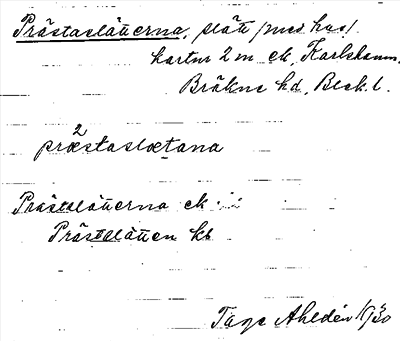 Prästaslätterna, slätt /med hus/
kartur 2 m ek, Karlshamn.
Bräkne hd, Blek. l.
2
præstaslætana
Prästslätterna ek
Prästslätten kb
Tage Ahldén 1930